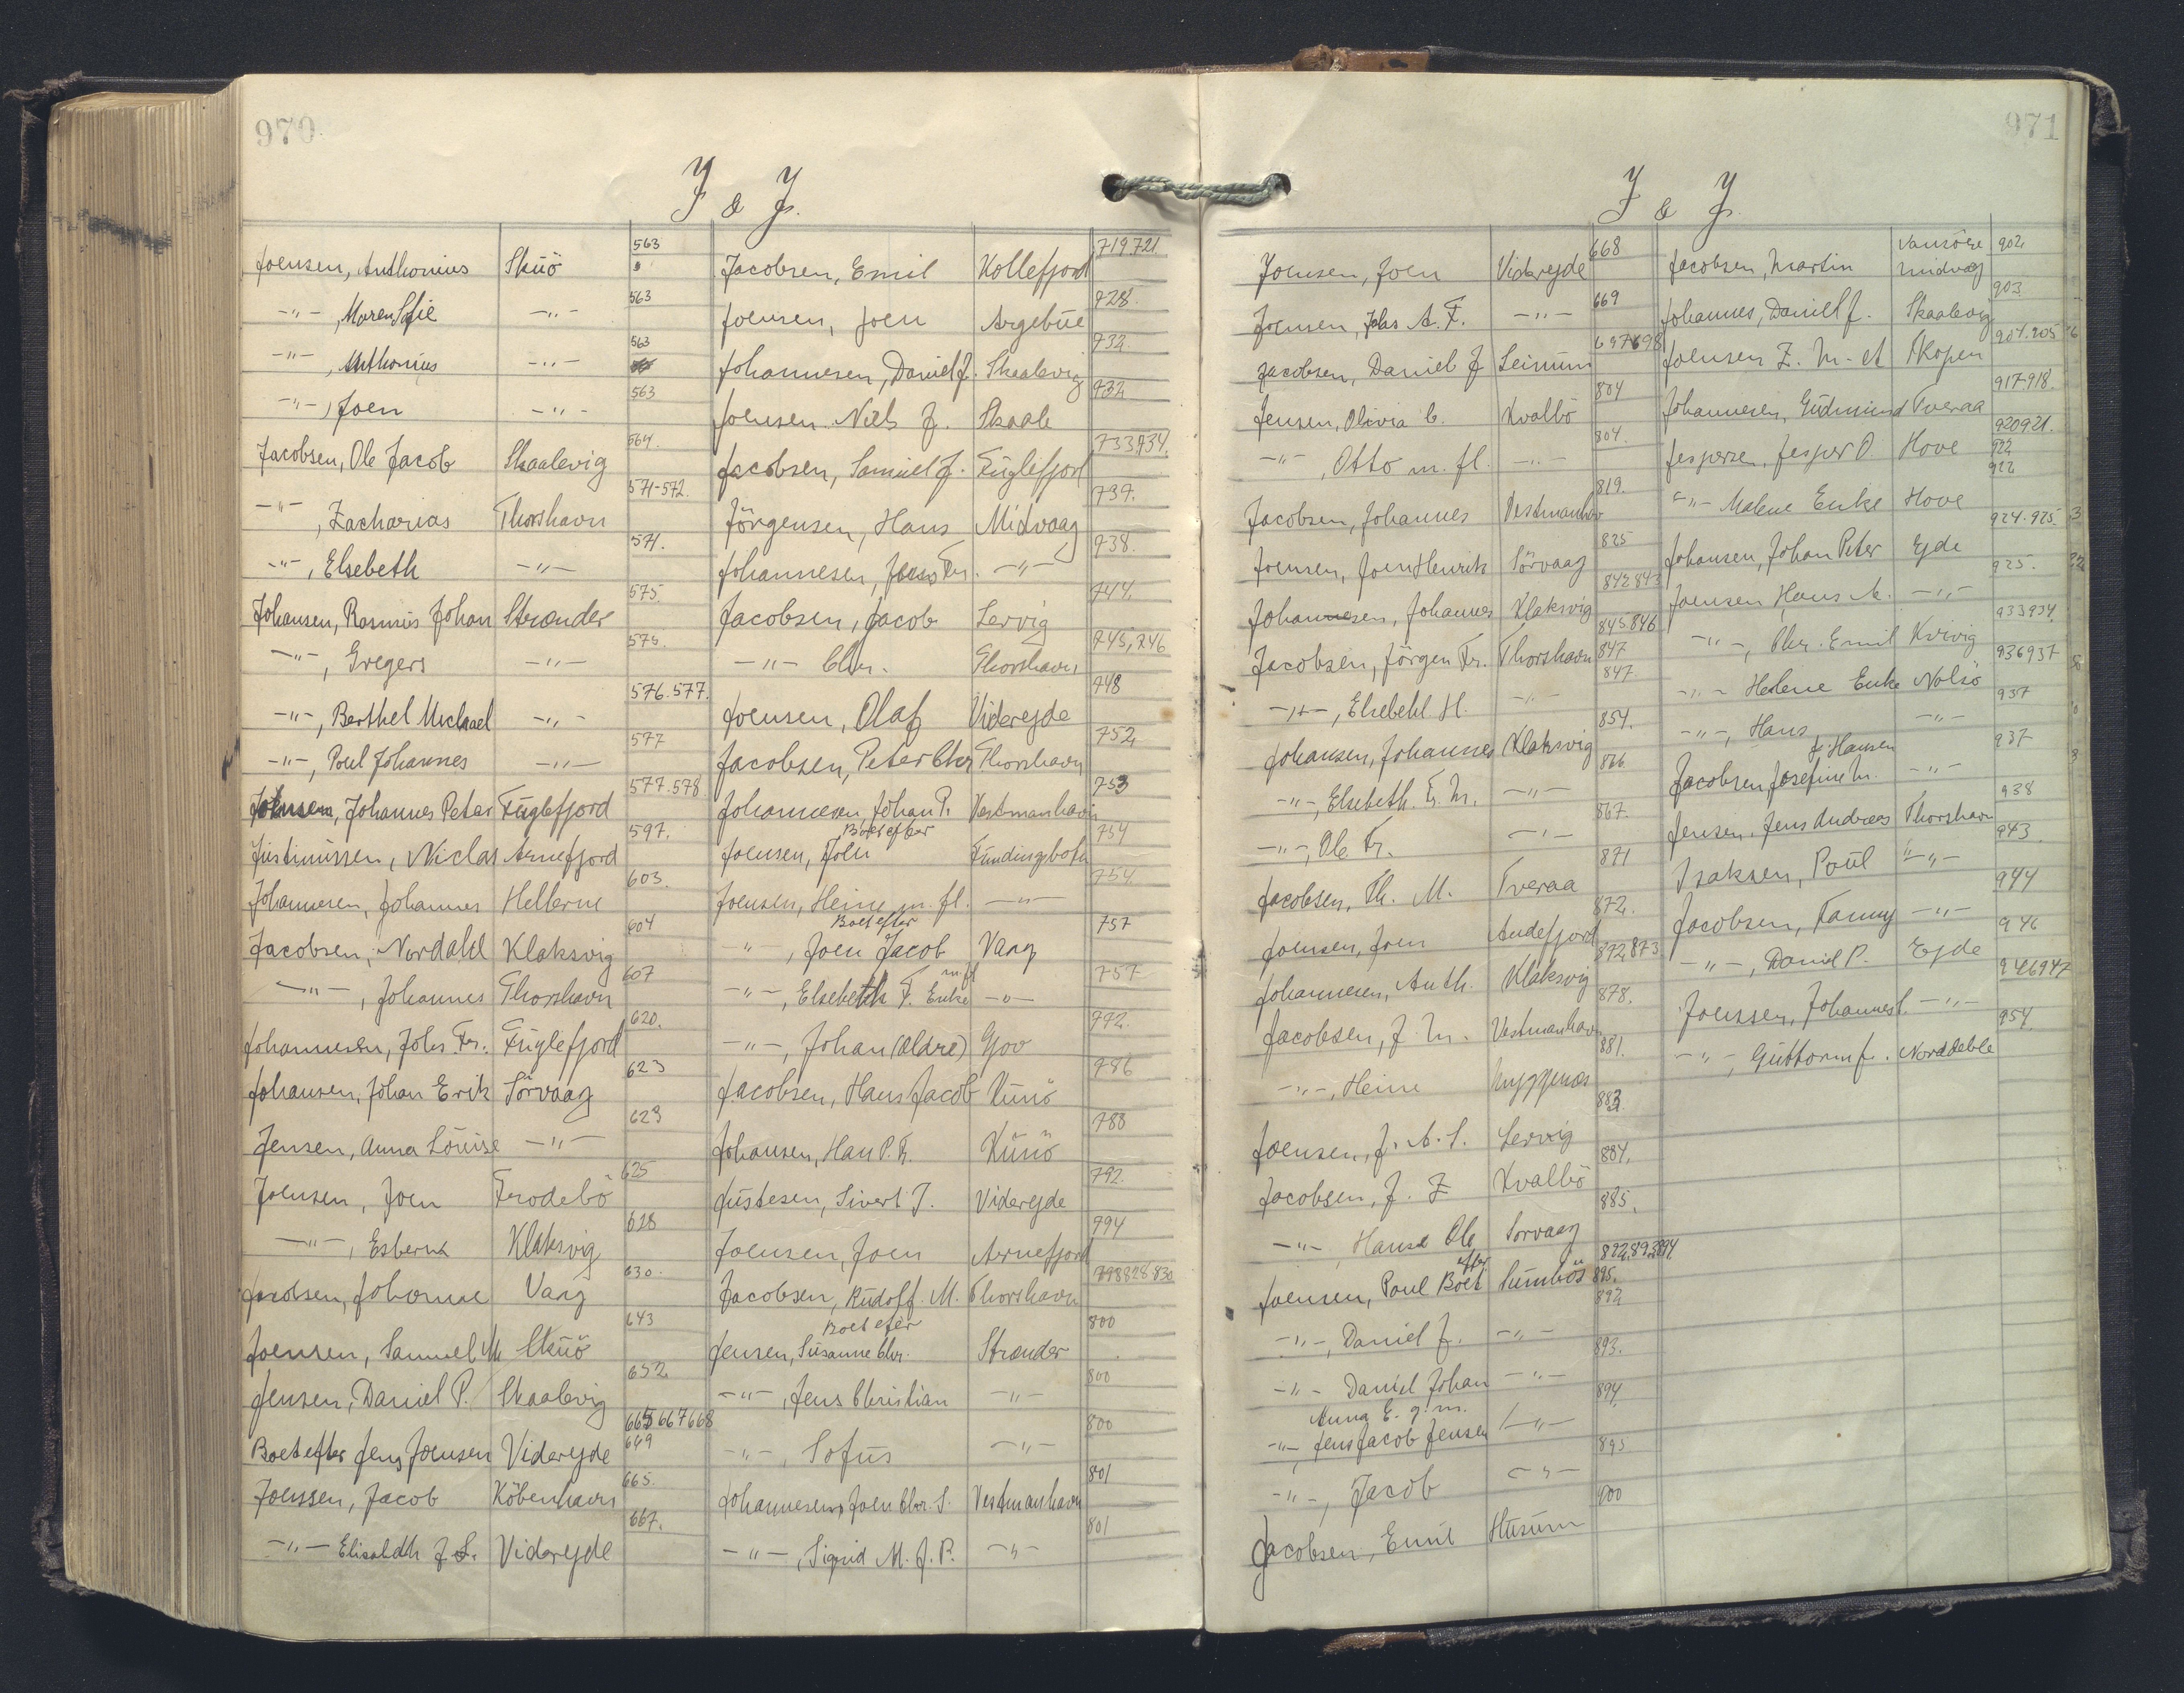 970.
I & J.
Joensen, Anthonius Skuö 563
-"-, Maren Sofie -"- 563
-"-, Anthonius -"- 563
-"-, Joen -"- 563
Jacobsen, Ole Jacob Skaalevig 564.
-"-, Zacharias Thorshavn 571-572.
-"-, Elsebeth -"- 571.
Johansen, Rasmus Johan Strænder 575.
-"-, Gregers -"- 575.
-"-, Berthel Michael -"- 576.577.
-"-, Poul Johannes -"- 577
Joensen, Johannes Peter Fuglefjord 577.578.
Justinussen, Niclas Arnefjord 597.
Johannesen, Johannes Hellerne 603.
Jacobsen, Nordahl Klaksvig 604
-"-, Johannes Thorshavn 607
Johannesen, Johs Fr. Fuglefjord 620.
Johansen, Johan Erik Sörvaag 623
Jensen, Anna Louise -"- 623
Joensen, Joen Frodebö 625
-"-, Esbern Klaksvig 628
Jacobsen, Johanne Vaag 630.
Joensen, Samuel M Skuö 643
Jensen, Daniel P. Skaalevig 652
Boet efter Jens Joensen Videreide 665 667 668
649
Joensen, Jacob Köbenhavn 665.
-"- Elisabeth J. S. Videreide 667.
Jacobsen, Emil Kollefjord 719.721
Joensen, Joen Argebue 728.
Johannesen, Daniel J. Skaalevig 732.
Joensen Niels J. Skaale 732
Jacobsen, Samuel J. Fuglefjord 733,734.
Jörgensen, Hans Midvaag 737.
Johannesen, Jens Fr. -"- 738.
Jacobsen, Jacob Lervig 744.
-"- Chr. Thorshavn 745,746
Joensen, Olaf Videreide 748
Jacobsen, Peter Chr Thorshavn 752
Johannesen, Johan P. Vestmanhavn 753
Boet efter
Joensen, Joen Funduingsbotn 754
Joensen, Heine m. fl. -"- 754.
Boet efter
-"-, Joen Jacob Vaag 757
m.fl
-"-, Elsebeth F. Enke -"- 757
-"-, Johan (ældre) Gjov 772.
Jacobsen, Hans Jacob Kunö 786
Johansen, Han P. F. Kunö 788
Justesen, Sivert J. Videreide 792.
Joensen, Joen Arnefjord 794
Jacobsen, Rudolf. M. Thorshavn 798 828 830
Boet efter
Jensen, Susanne Chr. Strænder 800
-"-, Jens Christian -"- 800
-"-, Sofus -"- 800
Johannesen, Joen Chr. S. Vestmanhavn 801
-"-, Sigrid M. J. P. -"- 801
971
I & J.
Joensen, Joen Videreide 668
Joensen, Johs A. F. -"- 669
Jacobsen, Daniel J Leinum 697 698
Jensen, Olivia C. Kvalbö 804
-"-, Otto m. fl. -"- 804.
Jacobsen, Johannes Vestmanhav 819.
Joensen, Joen Henrik Sörvaag 825
Johannesen, Johannes Klaksvig 842 843
Jacobsen, Jörgen Fr. Thorshavn 845 846
847
-"-, Elsebeth H. -"- 847.
Johansen, Johannes Klaksvig 854.
-"-, Elsebeth F. M. -"- 866
-"-, Ole Fr. -"- 867.
Jacobsen, Th. M. Tveraa 871
Joensen, Joen Andefjord 872.
Johannesen, Anth. Klaksvig 872 873
Jacobsen, J. M. Vestmanhavn 878.
-"-, Heine Myggenæs 881.
Joensen, J. A. S. Lervig 883
Jacobsen, J. F Kvalbö 884.
-"- Hanse Ole Sorvaag 885.
efter
Joensen, Poul Boet Sumbö 892,893 894
895.
-"-, Daniel J. -"- 892
-"- Daniel Johan -"- 893.
Anna E. g. m.
-"-, Jens Jacob Jensen -"- 894
-"-, Jacob -"- 895
Jacobsen, Emil Husum 900
Jacobsen, Martin Midvag 902
Johannes, Daniel J. Skaalevig 903.
Joensen Z. M. Skopen 904.905
Johannesen, Gudmund Tveraa 917-918.
Jespersen, Jesper O Hove 920 921.
922
-"- Malene Enke Hove 922
Johansen, Johan Peter Ejde 924.925.
Joensen Hans A. -"- 925.
-"-, Chr. Emil Kvivig 933 934
-"- Helene Enke Nolsö 936 937
-"-, Hans -"- 937
f. Hansen
Jacobsen Josefine M. -"- 937
Jensen, Jens Andreas Thorshavn 938
Isaksen, Poul -"- 943
Jacobsen, Fanny -"- 944
-"-, Daniel P. Ejde 946
Joensen, Johannes -"- 946 947
-"-, Guttorm J. Norddeble 954